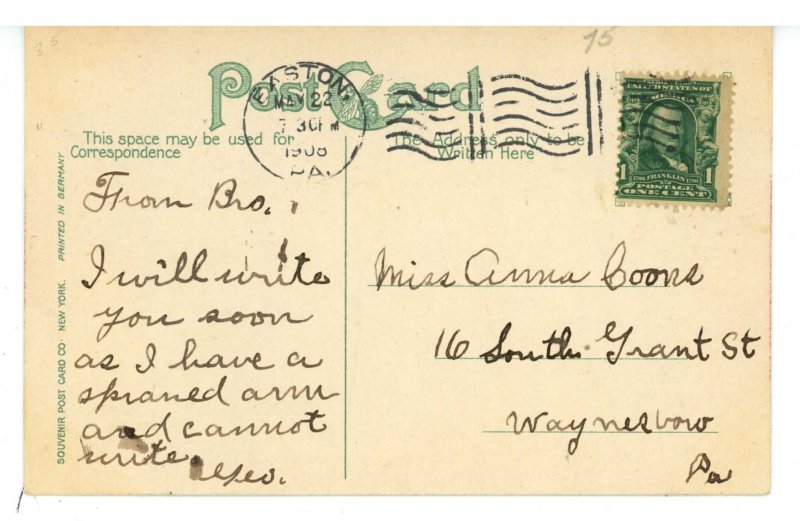 85
75
Post Card
This space may be used for
Correspondence
The Address only to be
Written Here
EASTON,
MAY 22
7 30 PM
1908
PA.
UNITED STATES OF
1 FRANKLIN 1
1706 1790
POSTAGE
ONE CENT
PRINTED IN GERMANY
SOUVENIR POST CARD CO· NEW YORK.
From Bro.
I will write
you soon
as I have a
spraned arm
and cannot
write.
Geo.
Miss Anna Coons
16 South Grant St
Waynesbow
Pa